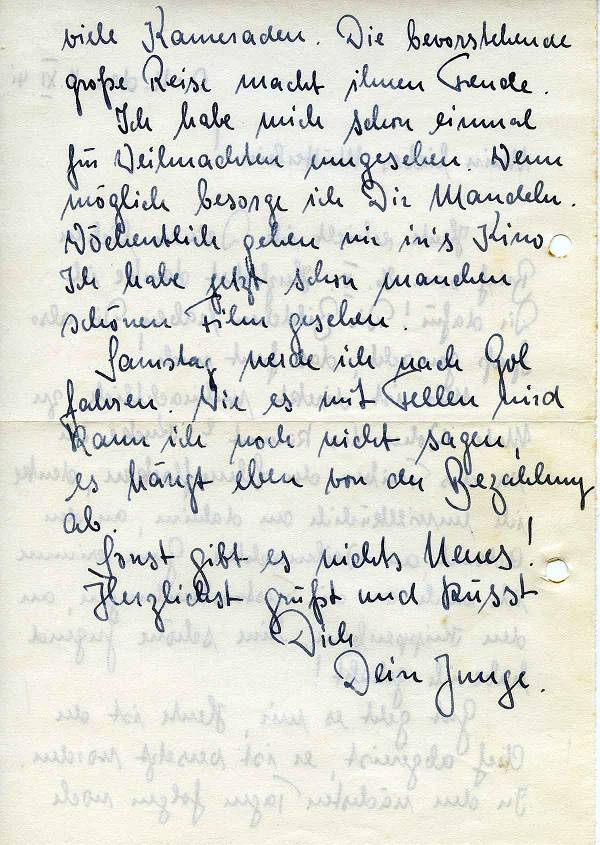 viele Kameraden. Die bevorstehende
große Reise macht ihnen Freude.
Ich habe mich schon einmal
für Weihnachten umgesehen. Wenn
möglich besorge ich Dir Mandeln.
Wöchentlich gehen wir in's Kino.
Ich habe jetzt schon manchen
schönen Film gesehen.
Samstag werde ich nach Gol
fahren. Wie es mit Fellen wird
kann ich noch nicht sagen,
es hängt eben von der Bezahlung
ab.
Sonst gibt es nichts Neues!
Herzlichst grüßt und küsst
Dich
Dein Junge.